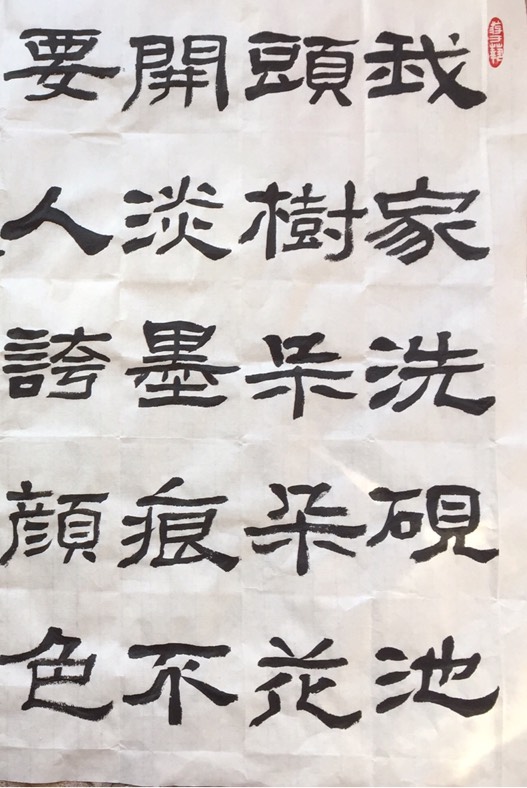 我家洗硯池
頭樹朵朵花
開淡墨痕不
要人誇顏色